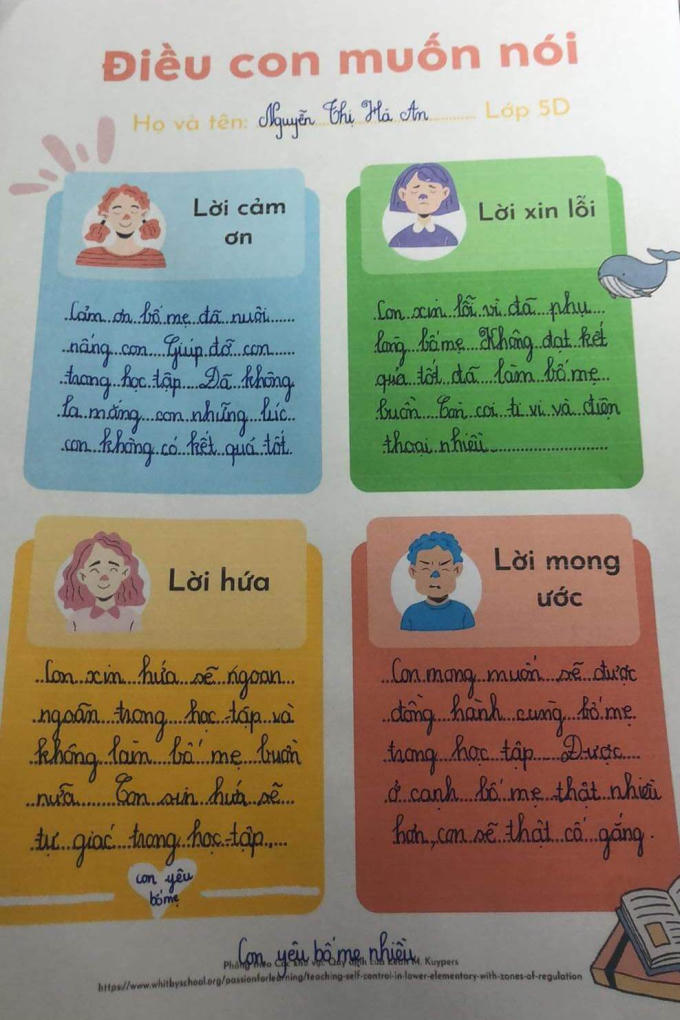 Điều con muốn nói
Họ và tên: Nguyễn Thị Hà An Lớp 5D
Lời cảm
ơn
Cảm ơn bố mẹ đã nuôi
nấng con. Giúp đỡ con
trong học tập. Đã không
la mắng con những lúc
con không có kết quả tốt.
Lời xin lỗi
Con xin lỗi vì đã phụ
lòng bố mẹ. Không đạt kết
quả tốt đã làm bố mẹ
buồn. Còn coi ti vi và điện
thoại nhiều
Lời hứa
Con xin hứa sẽ ngoan
ngoãn trong học tập và
không làm bố mẹ buồn
nữa. Con xin hứa sẽ
tự giác trong học tập
con yêu
bố mẹ
Lời mong
ước
Con mong muốn sẽ được
đồng hành cùng bố mẹ
trong học tập. Được
ở cạnh bố mẹ thật nhiều
hơn, con sẽ thật cố gắng.
Con yêu bố mẹ nhiều
Phỏng theo Các khu vực Quy định của M. Kuypers
https://www.whitbyschool.org/passionforlearning/teaching-self-control-in-lower-elementary-with-zones-of-regulation